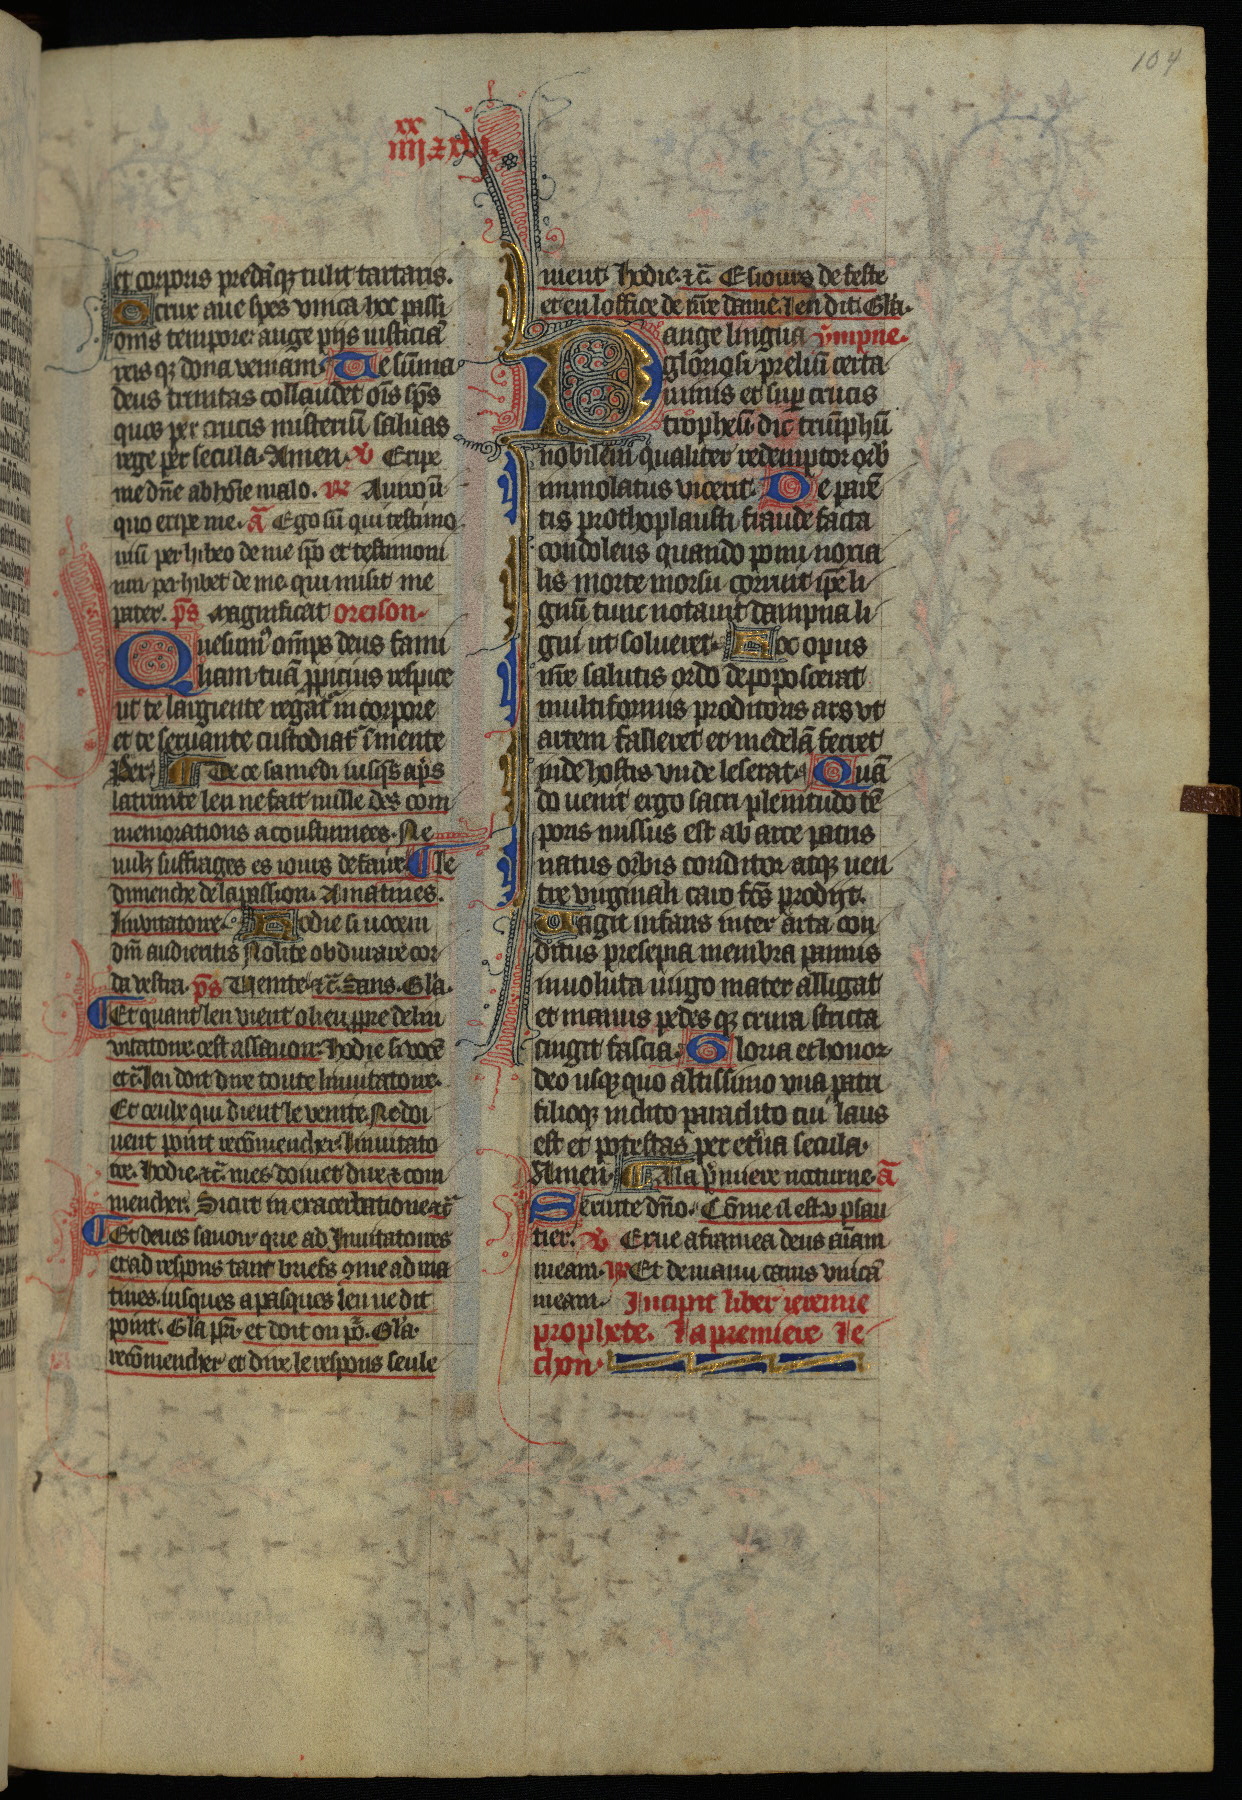 104
xx
iiij z xvi.
et corporis predāqz tulit tartaris.
O crux aue spes vnica hoc passi
onis tempore: auge pijs iusticiā
reis qz dona veniam. Te sūma
deus trinitas collaudet oīs sp̄s
quos per crucis misteriū saluas
rege per secula. Amen. v̄ Eripe
me dn̄e ab hoīe malo. R̄ A uiro ī
quo eripe me. ā Ego sū qui testimo
niū per hibeo de me ip̄o et testimoni
um per hibet de me qui misit me
pater. p̄s Magnificat oreison.
Quesum⁹ om̄ps deus fami
liam tuā ꝓpicius respice
ut te largiente regat̄ in corpore
et te seruante custodiat̄ ī mente
Per. De ce samedi iusqs apͥs
la trinite len ne fait nulle des com
memorations acoustumees. Ne
nulz suffrages es iours de faire. Le
dimenche de la passion. A matines.
Inuitatoire. Hodie si uocem
dn̄i audieritis Nolite obdurare cor
da vestra. p̄s Venite. zc̄. Sans. Gl̄a.
Et quant len vient o lieu ꝓpre de lin
uitatoire cest assauoir. Hodie si vocē
etc̄. len doit dire toute linuitatoire.
Et ceulx qui dient le venite. Ne doi
uent point recōmencher. linuitato
ire. Hodie. zc̄. mes doiuet dire z com
mencher. Sicut in exacerbatione zc̄
Et deues sauoir que ad Inuitatoires
et ad respons tant briefs ꝯme ad ma
tines. iusques a pasques len ne dit
point. Gl̄a pr̄i. et doit on po᷑. Gl̄a.
recōmencher et dire le respons seule
ment. Hodie. zc̄. Es iours de feste
et en loffice de nr̄e dame. len dit Gl̄a.
Pange lingua ympne.
glōriosi prelisū certa
minis et sup crucis
tropheū. dic triūphū
nobilem qualiter redemptor orb̄
immolatus vicerit. De parē
tis prothoplausti fraude facta
condolens quando pomi noxia
lis morte morsu corruit ip̄e li
gnū tunc notauit dampna li
gni ut solueret. Hoc opus
nr̄e salutis ordo depoposcerat
multiformis proditoris ars vt
artem falleret et medelā ferret
inde hostis vnde leserat. Quā
do uenit ergo sacri plenitudo tē
poris missus est ab arce patris
natus orbis conditor atqz uen
tre virginali caro fc̄s prodijt.
Vagit infans inter arta con
ditus presepia membra pannis
inuoluta uirgo mater alligat
et manus pedes qz crura stricta
cingit fascia. Gloria et honor
deo usqz quo altissimo vna patri
filioqz inclito paraclito cui laus
est et potestas per et̄na secula.
Amen. A la p̄miere nocturne. ā
Seruite dn̄o. Cōme il est v psau
tier. v̄ Erue a framea deus aīam
meam. R̄ Et de manu canis vnicā
meam. Incipit liber ieremie
prophete. La premiere le
chon.